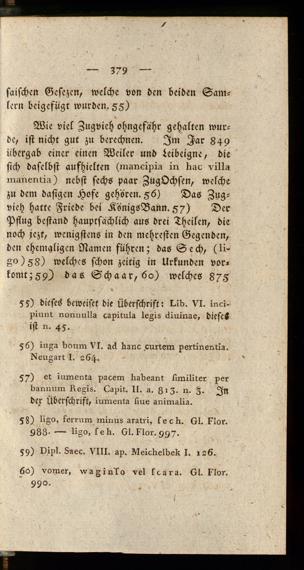 — 379 —
saischen Gesezen, welche von den beiden Sam-
lern beigefügt wurden. 55)
Wie viel Zugvieh ohngefähr gehalten wur-
de, ist nicht gut zu berechnen. Im Jar 849
übergab einer einen Weiler und Leibeigne, die
sich daselbst aufhielten (mancipia in hac villa
manentia) nebst sechs paar ZugOchsen, welche
zu dem dasigen Hofe gehören. 56) Das Zug-
vieh hatte Friede bei KönigsBann. 57) Der
Pflug bestand hauptsächlich aus drei Theilen, die
noch jezt, wenigstens in den mehresten Gegenden,
den ehmaligen Namen führen; das Sech, (li-
go) 58) welches schon zeitig in Urkunden vor-
komt; 59) das Schaar, 60) welches 875
55) dieses beweiset die Überschrift: Lib. VI. inci-
piunt nonnulla capitula legis diuinae, dieses
ist n. 45.
56) iuga boum VI. ad hanc curtem pertinentia.
Neugart I. 264.
57) et iumenta pacem habeant similiter per
bannum Regis. Capit. II. a. 813. n. 3. In
der Überschrift, iumenta siue animalia.
58) ligo, ferrum minus aratri, sech. Gl. Flor.
988. — ligo, seh. Gl. Flor. 997.
59) Dipl. Saec. VIII. ap. Meichelbek I. 126.
60) vomer, waginso vel scara. Gl. Flor.
990.